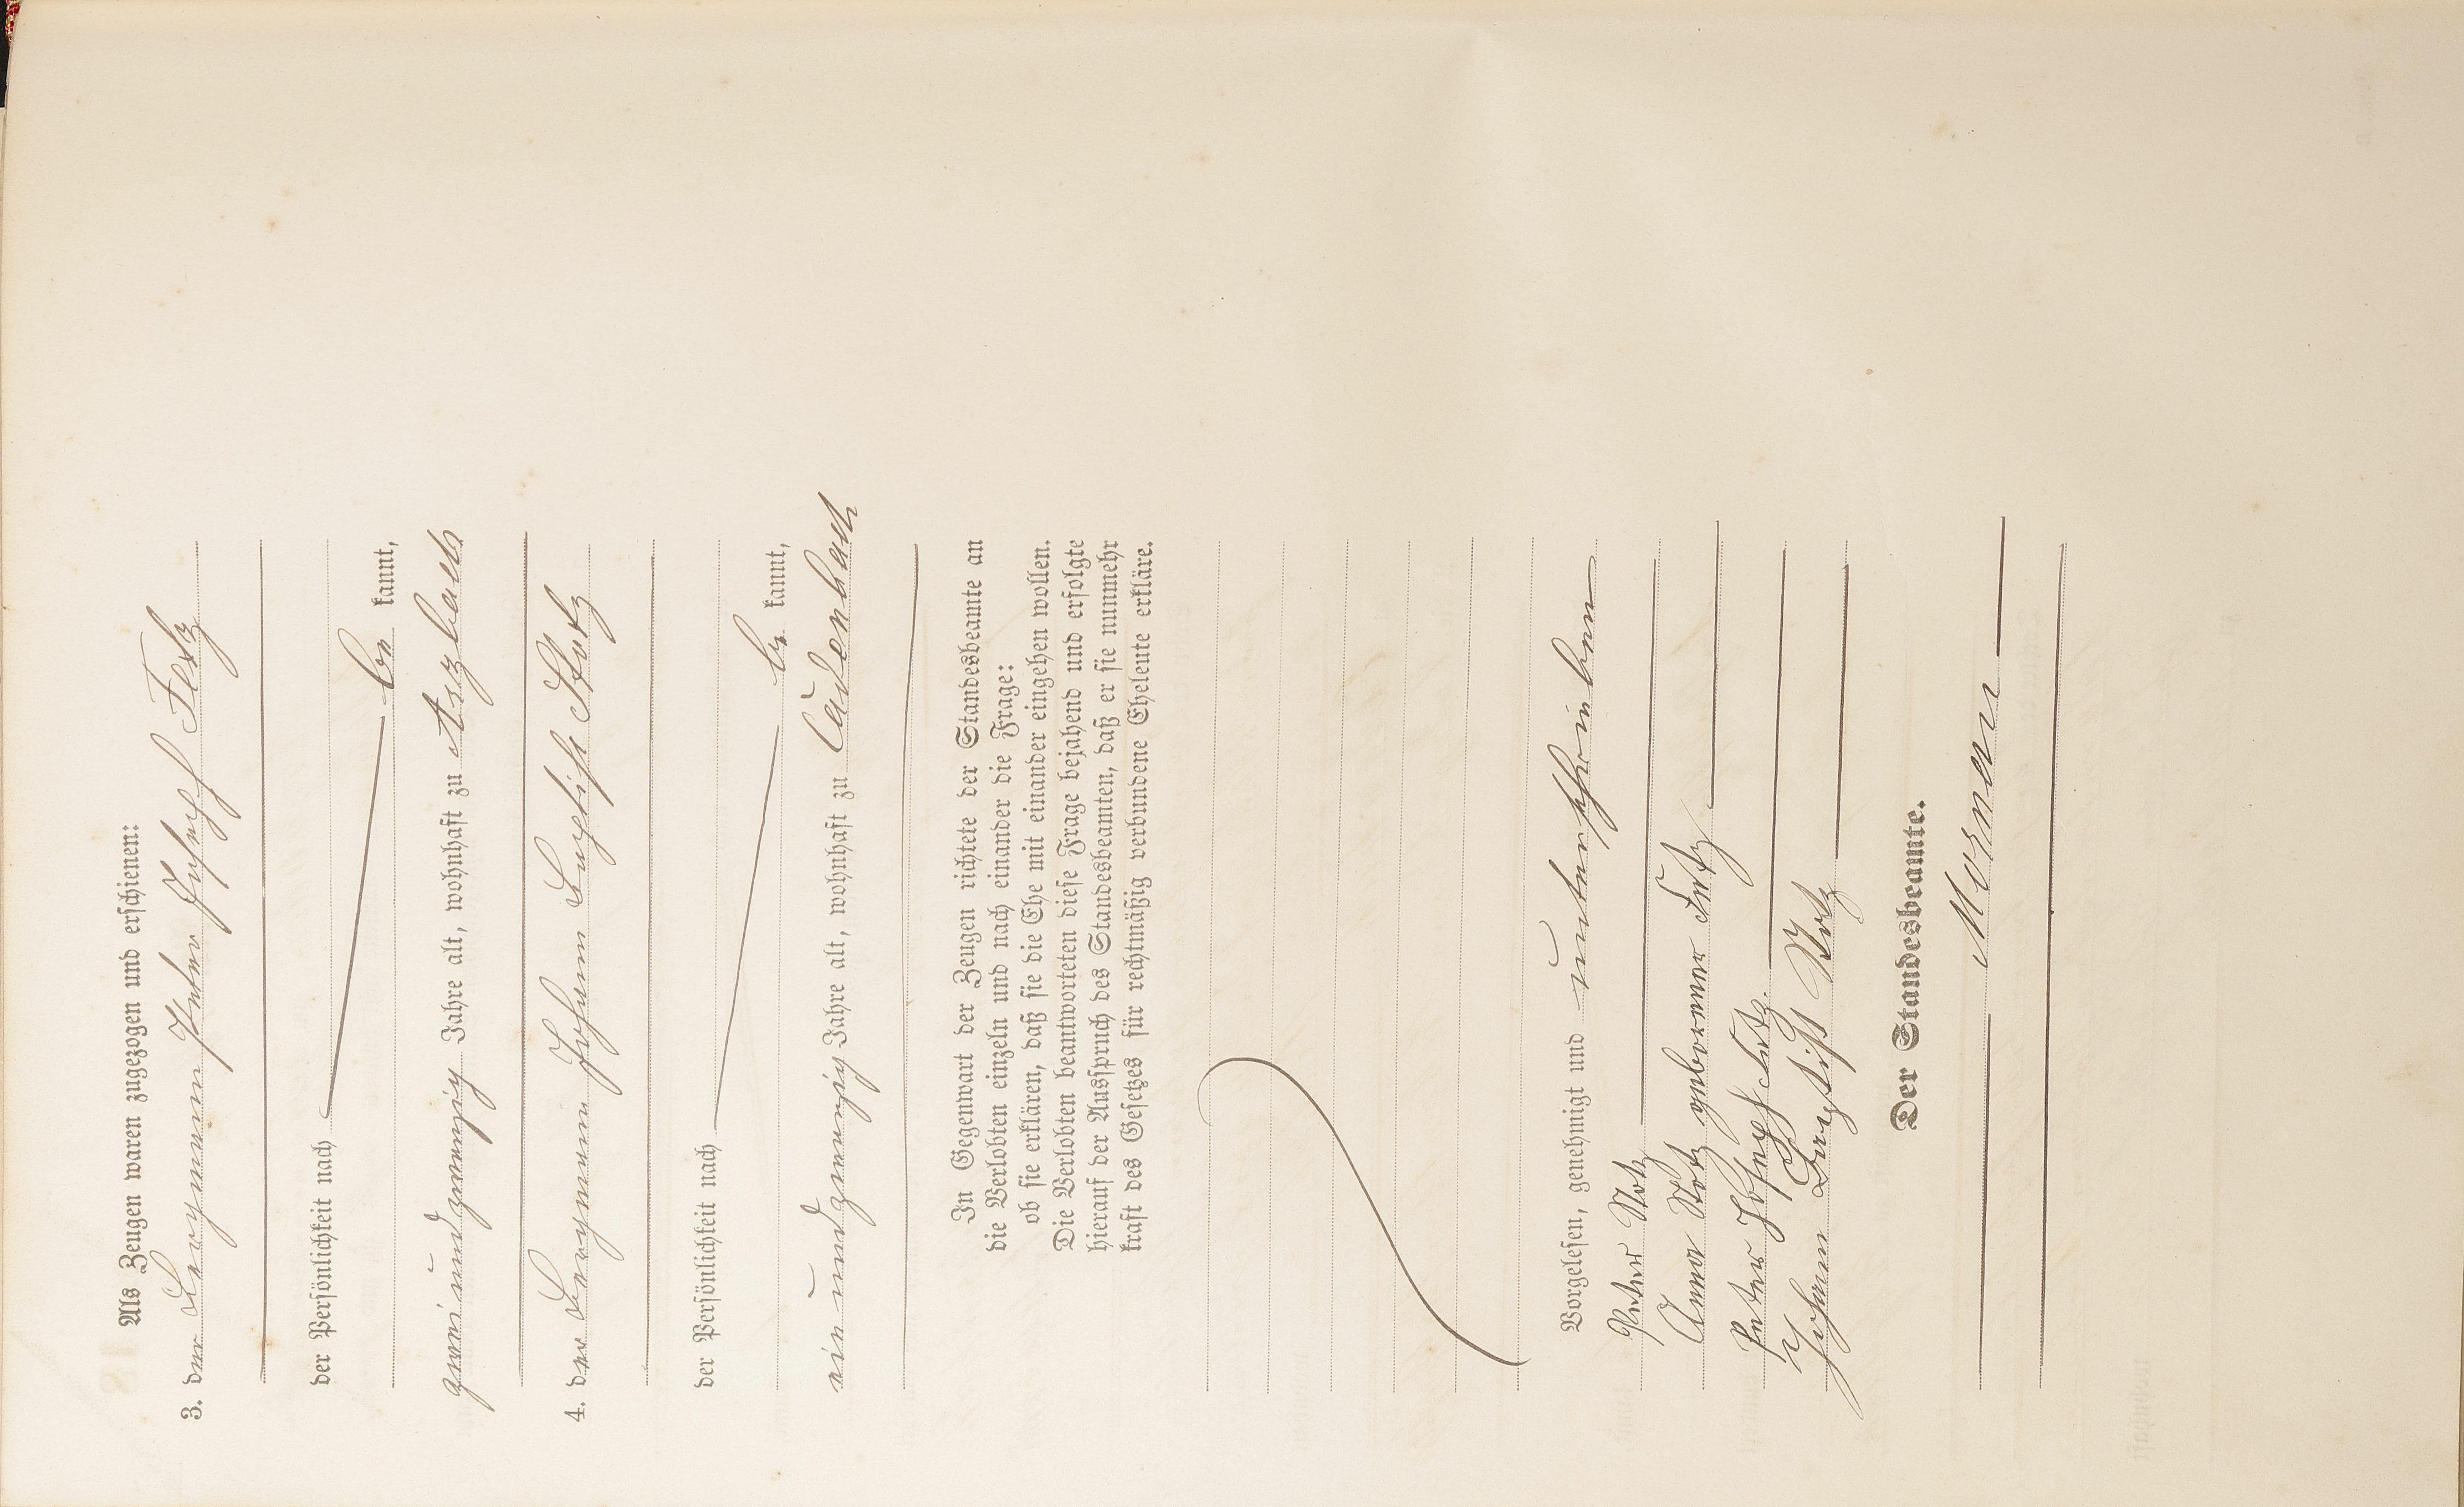 Als Zeugen waren zugezogen und erschienen:
3. der Bergmann Peter Joseph Fetz
der Persönlichkeit nach
be kannt,
zweiundzwanzig Jahre alt, wohnhaft zu Arzbach
4. der Bergmann Johann Baptist Stotz
der Persönlichkeit nach
be kannt,
einundzwanzig Jahre alt, wohnhaft zu Cadenbach
In Gegenwart der Zeugen richtete der Standesbeamte an
die Verlobten einzeln und nach einander die Frage:
ob sie erklären, daß sie die Ehe mit einander eingehen wollen.
Die Verlobten beantworteten diese Frage bejahend und erfolgte
hierauf der Ausspruch des Standesbeamten, daß er sie nunmehr
kraft des Gesetzes für rechtmäßig verbundene Eheleute erkläre.
Vorgelesen, genehmigt und unterschrieben
Peter Stotz
Anna Stotz geborene Fetz
Peter Joseph Fetz.
Johann Baptist Stotz
Der Standesbeamte.